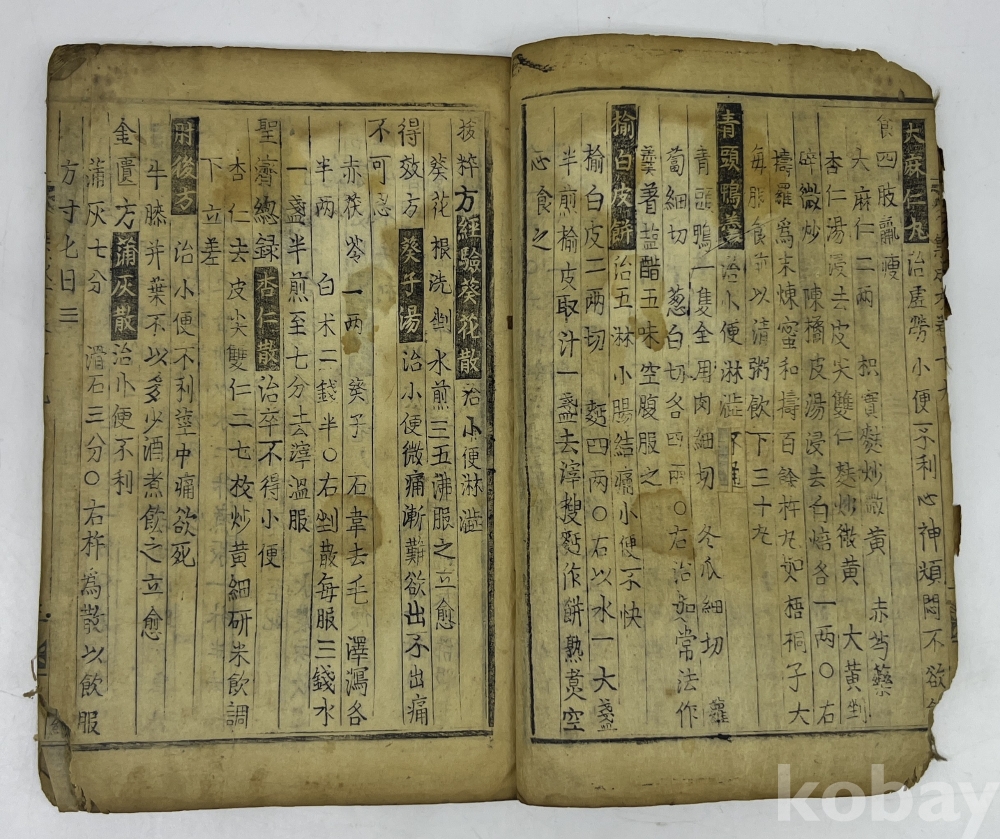 大麻仁丸治虛勞小便不利心神煩悶不欲
食四肢羸瘦
大麻仁二兩 枳實麩炒微黃 赤芍藥
杏仁湯浸去皮尖雙仁麩炒微黃 大黃剉
碎微炒 陳橘皮湯浸去白焙各一兩〇右
擣羅爲末煉蜜和擣百餘杵丸如梧桐子大
每服食前以清粥飲下三十丸
青頭鴨羹治小便淋澁不通
青頭鴨一隻全用肉細切 冬瓜細切 蘿
蔔細切 葱白切各四兩〇右治如常法作
羹着盐醋五味空腹服之
榆白皮餠治五淋小腸結痛小便不快
榆白皮二兩切 麪四兩〇右以水一大盞
半煎榆皮取汁一盞去滓搜麪作餠熟煑空
心食之
拔粹方經驗葵花散治小便淋澁
葵花根洗剉水煎三五沸服之立愈
得效方葵子湯治小便微痛漸難欲出不出痛
不可忍
赤茯苓一兩 葵子 石韋去毛 澤瀉各
半兩 白术二錢半〇右剉散每服三錢水
一盞半煎至七分去滓溫服
聖濟總録杏仁散治卒不得小便
杏仁去皮尖雙仁二七枚炒黃細研米飲調
下立差
肘後方 治小便不利莖中痛欲死
牛膝并葉不以多少酒煮飲之立愈
金匱方蒲灰散治小便不利
蒲灰七分 滑石三分〇右杵為散以飲服
方寸匕日三
kobay